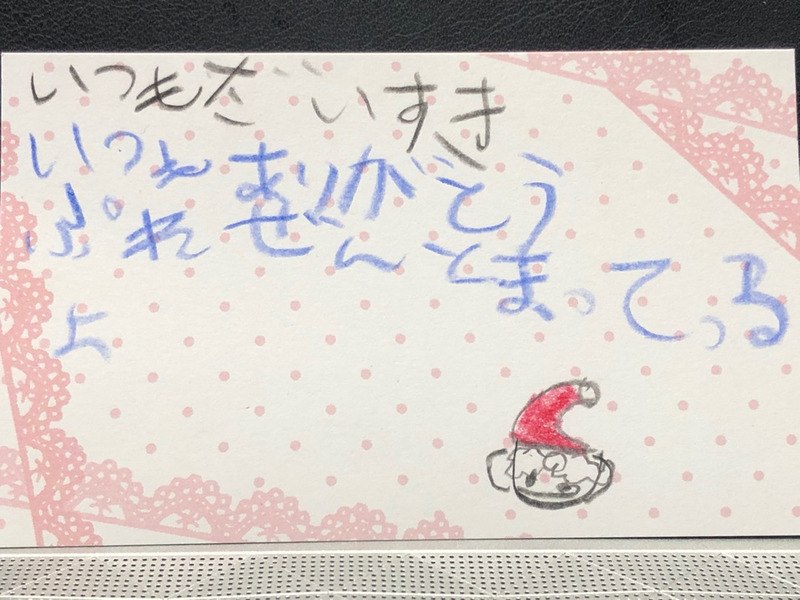 いつもだいすき
いつもありがとう
ぷれぜんとまってる
よ